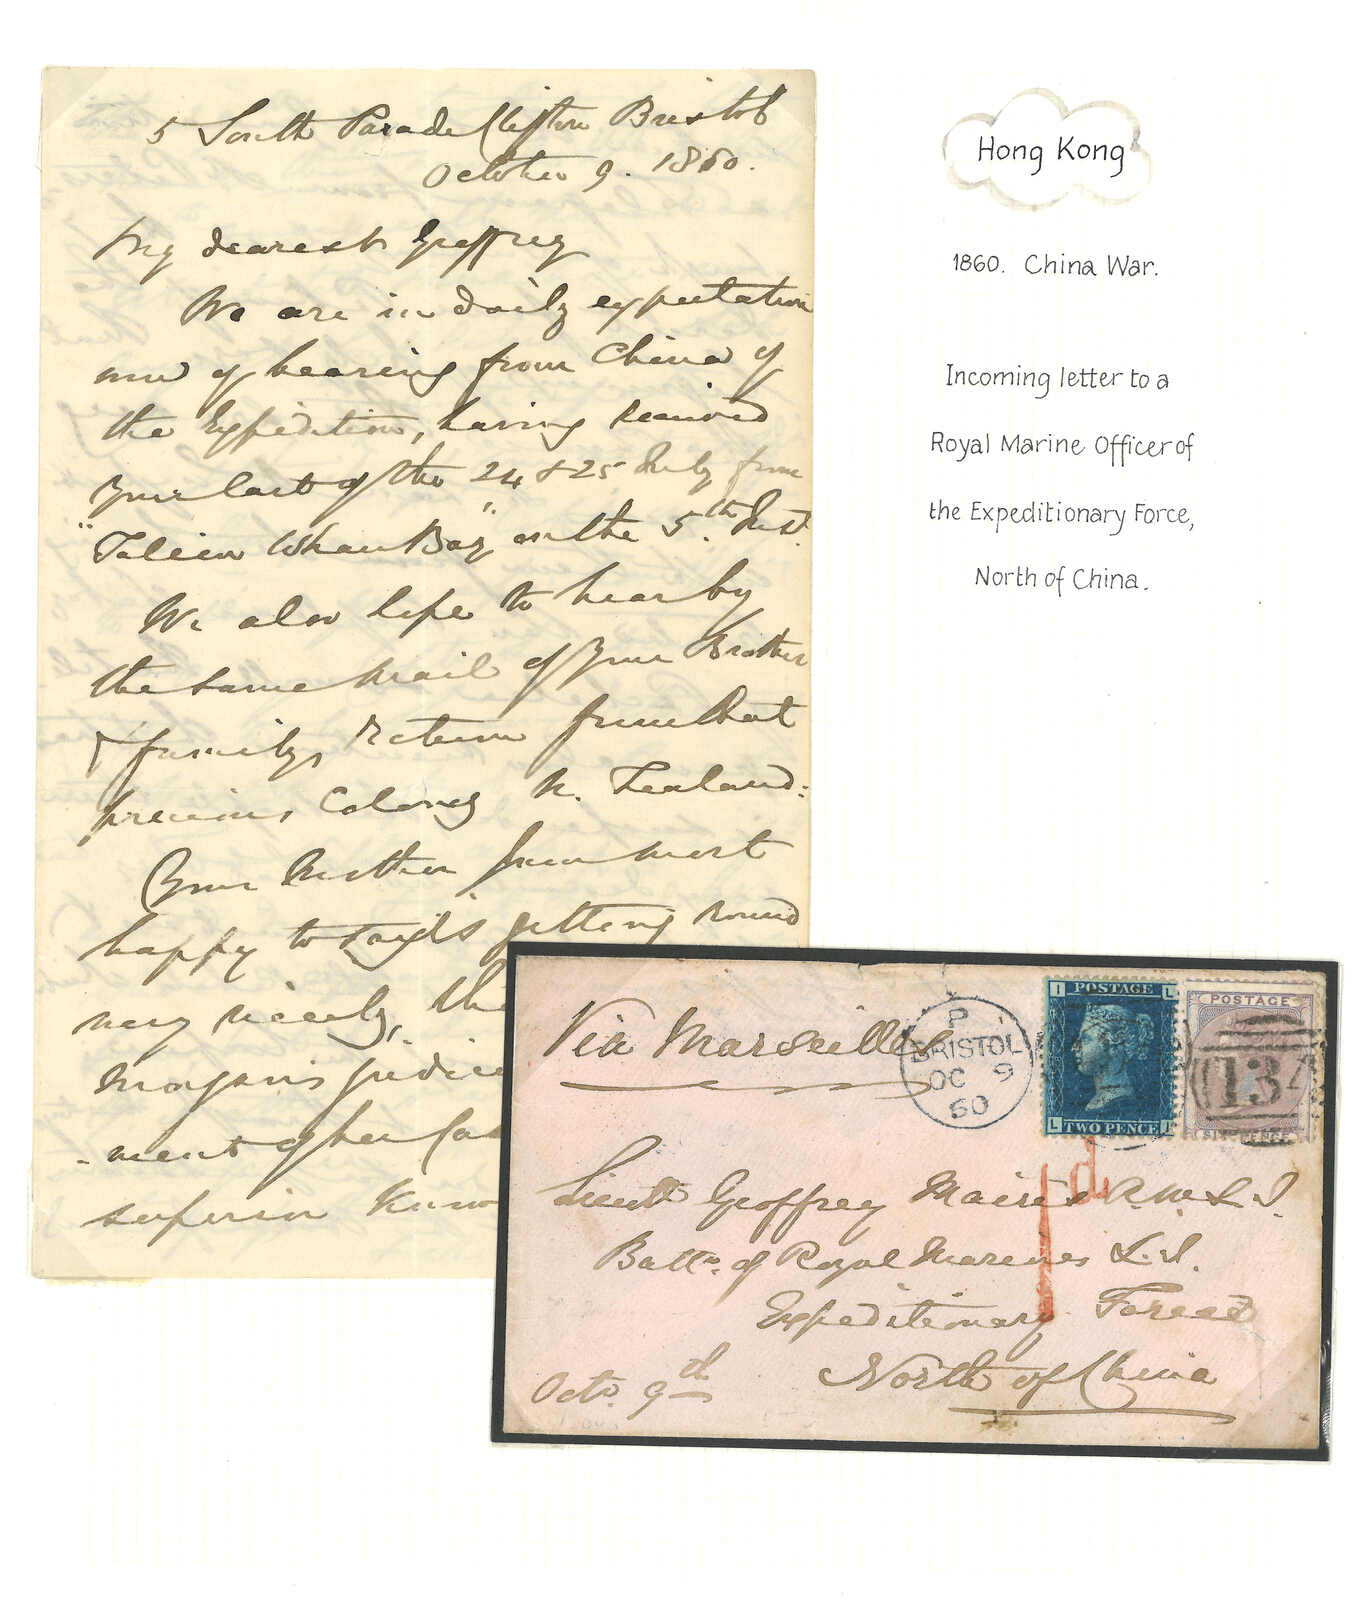 5 South Parade Clifton Bristol
October 9. 1860.
My dearest Geoffrey
We are in daily expectation
now of hearing from China of
the Expedition, having received
your last of the 24 & 25 July from
"Talien Whan Bay," on the 5.th Inst.
We also hope to hear by
the same Mail of your Brother
& family's return from that
precious Colony N. Zealand:
Your Mother from most
happy to say is getting round
very nicely, the
Morgan's judici
-ment of her cas
superior know
Hong Kong
1860. China War.
Incoming letter to a
Royal Marine Officer of
the Expeditionary Force,
North of China.
Via Marseilles
P
BRISTOL
OC 9
60
I POSTAGE L
L TWO PENCE I
POSTAGE
SIXPENCE
134
1d
Lieut Geoffrey Mairis R.M.L.I.
Battn. of Royal Marines L.I.
Expeditionary Force
North of China
Octr. 9d